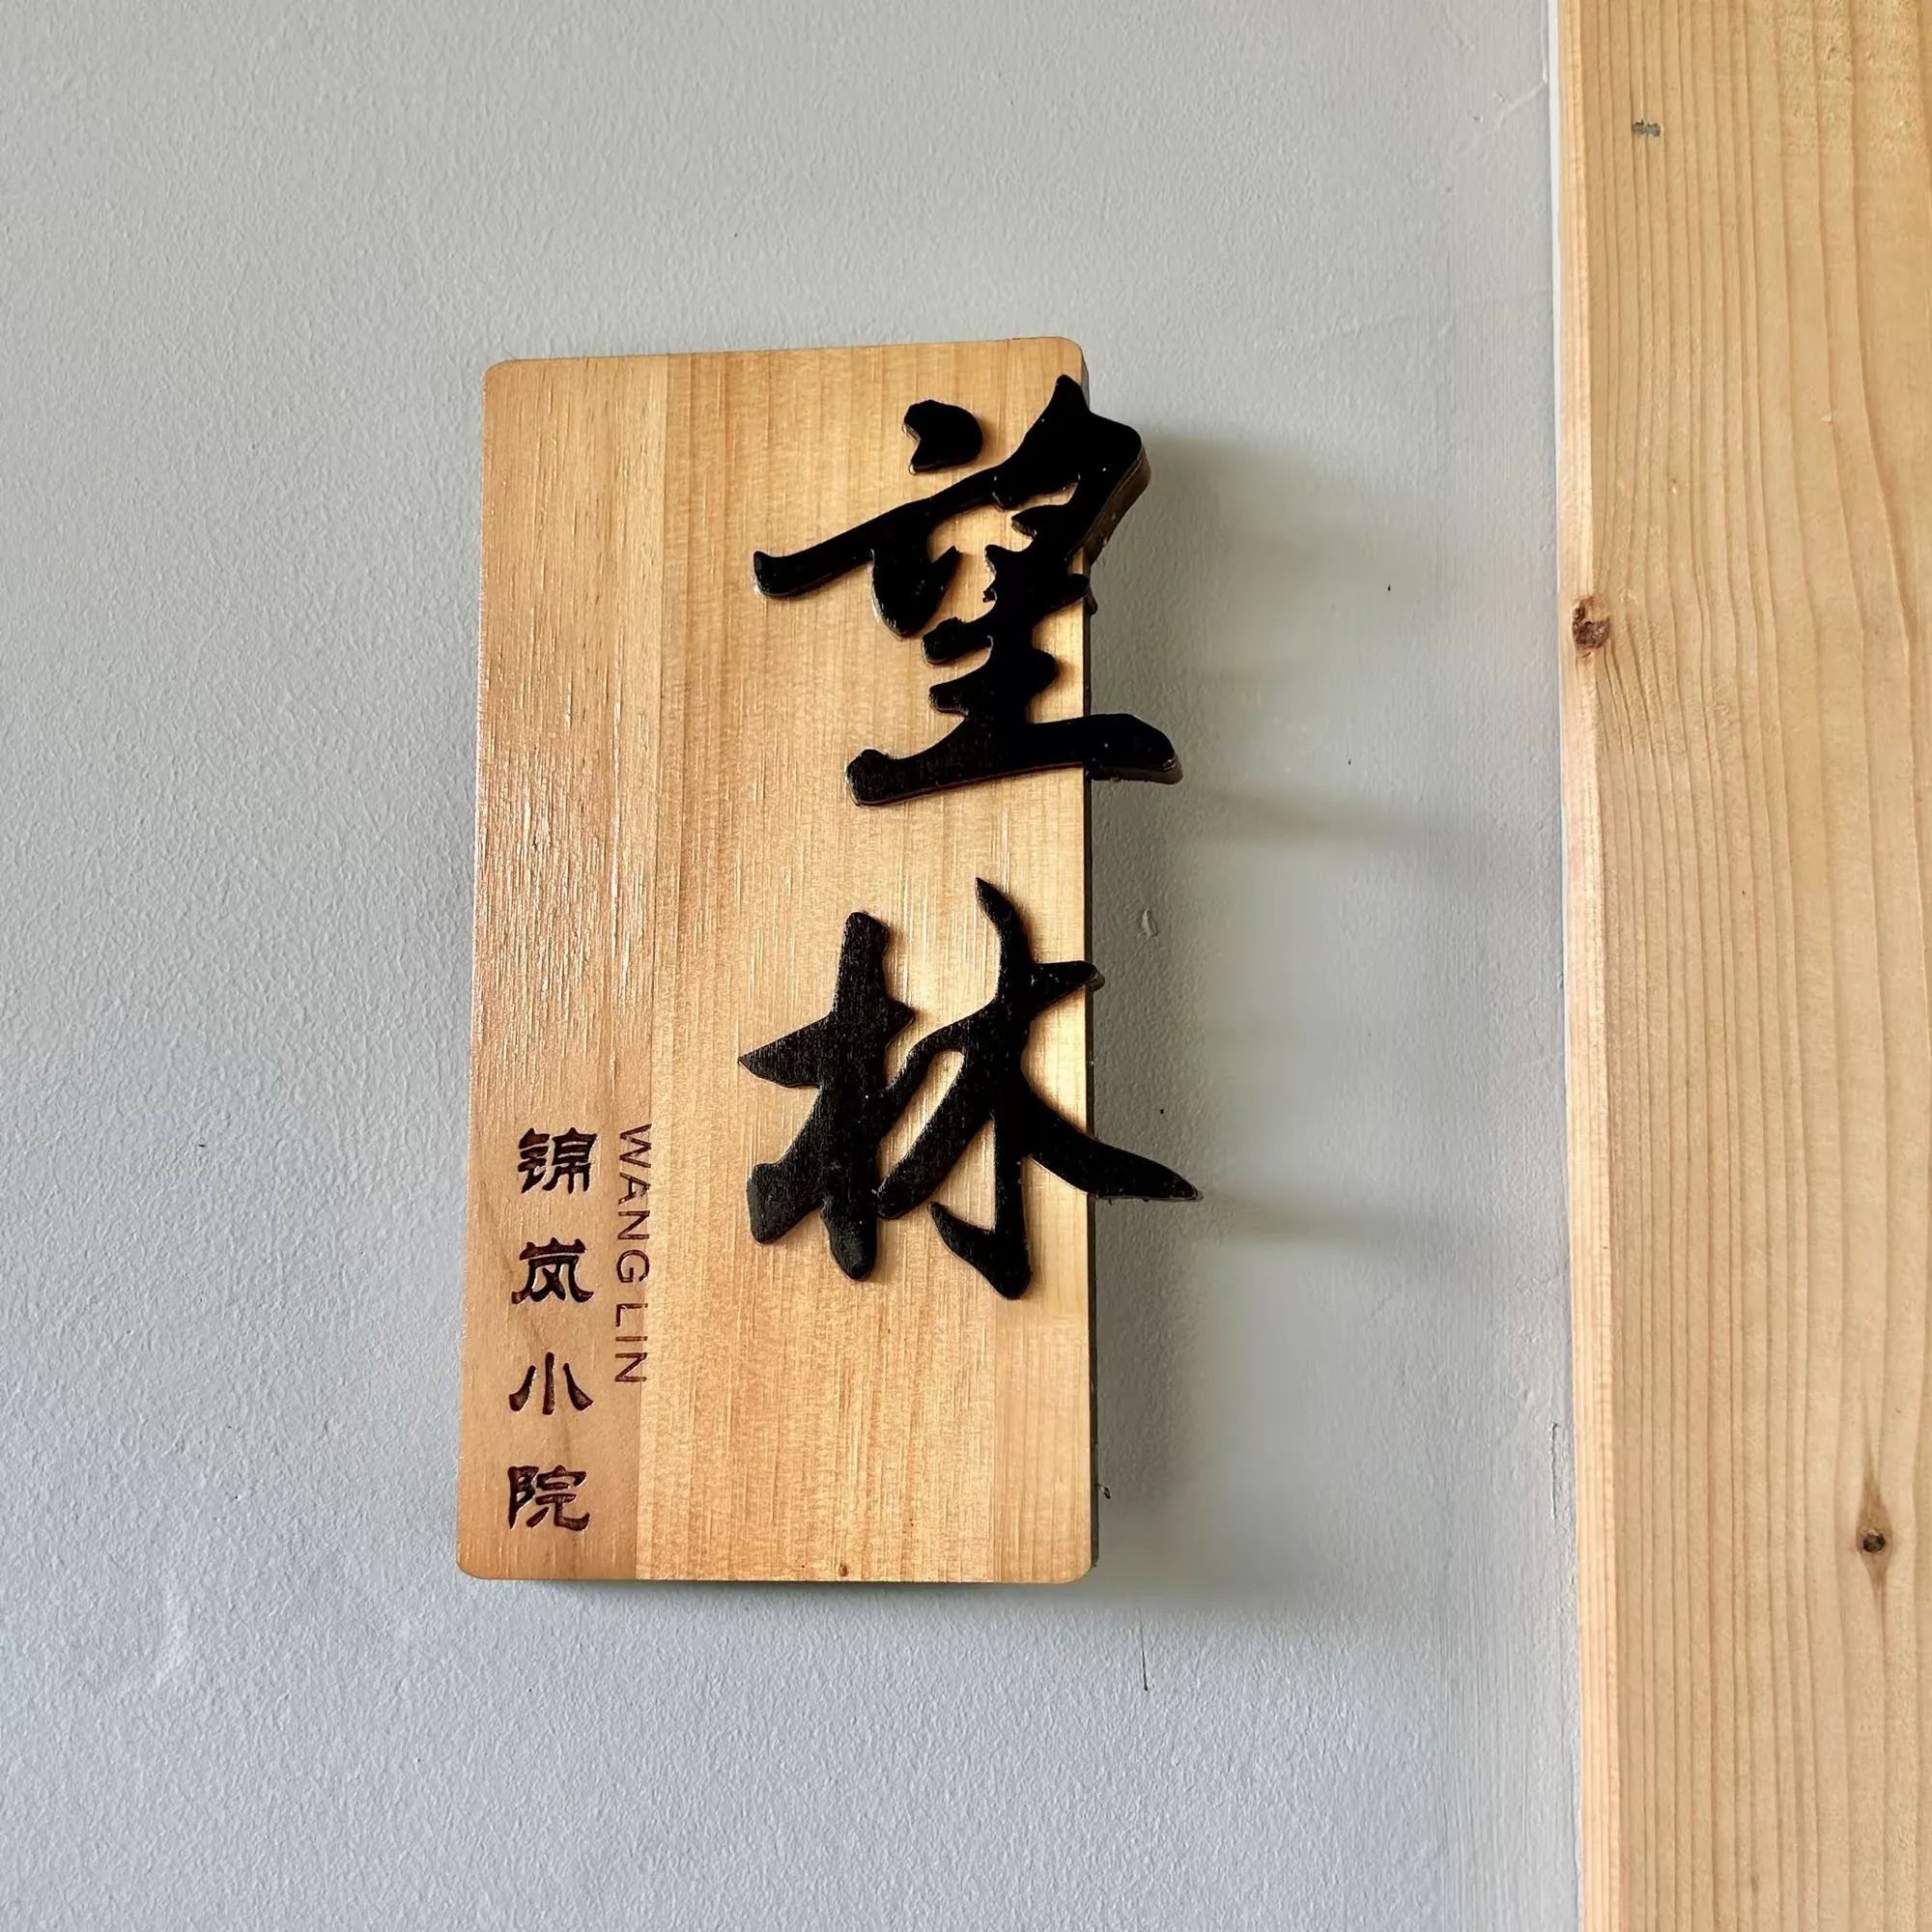 望林
WANG LIN
锦岚小院